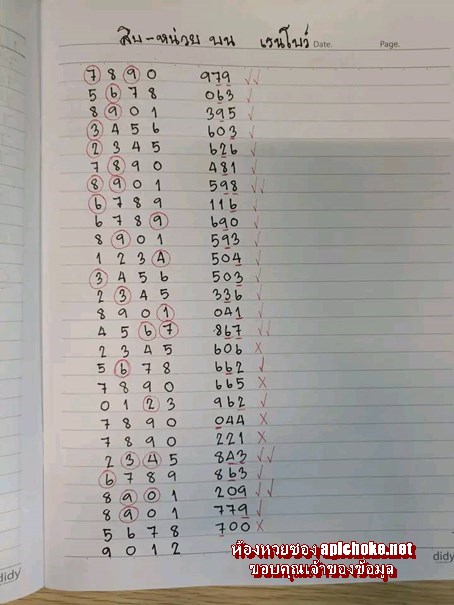 สิบ-หน่วย บน เรนโบว์ Date. Page.
7 8 9 0 979 ✓✓
5 6 7 8 063 ✓
8 9 0 1 395 ✓
3 4 5 6 603 ✓
2 3 4 5 626 ✓
7 8 9 0 481 ✓
8 9 0 1 598 ✓✓
6 7 8 9 116 ✓
6 7 8 9 690 ✓
8 9 0 1 593 ✓
1 2 3 4 504 ✓
3 4 5 6 503 ✓
2 3 4 5 336 ✓
8 9 0 1 041 ✓
4 5 6 7 867 ✓✓
2 3 4 5 606 ×
5 6 7 8 662 ✓
7 8 9 0 665 ×
0 1 2 3 962 ✓
7 8 9 0 044 ×
7 8 9 0 221 ×
2 3 4 5 843 ✓✓
6 7 8 9 863 ✓
8 9 0 1 209 ✓✓
8 9 0 1 779 ✓
5 6 7 8 700 ×
9 0 1 2
ห้องหวยซอง aplchoke.net
ขอบคุณเจ้าของข้อมูล
didy
didy